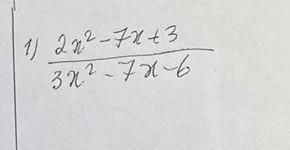 1) 2x² - 7x + 3
3x² - 7x - 6